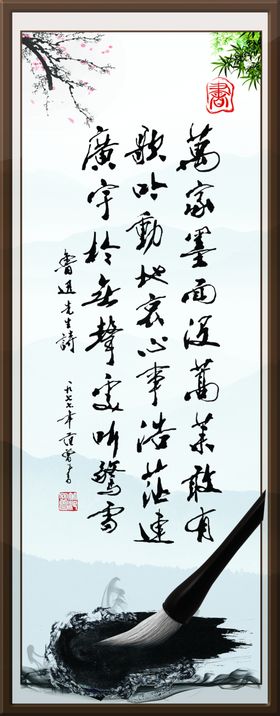 書
萬家墨面沒蒿萊敢有
歌吟動地哀心事浩茫連
廣宇於無聲處听驚雷
魯迅先生詩
一九七七年